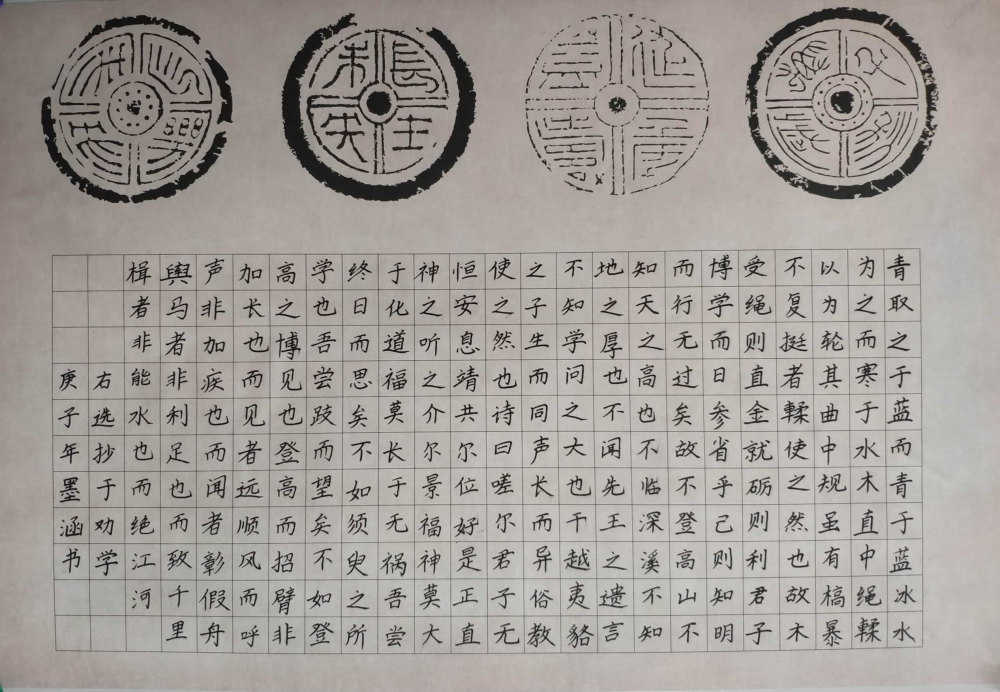 长生未央
青取之于蓝而青于蓝冰水
为之而寒于水木直中绳輮
以为轮其曲中规虽有槁暴
不复挺者輮使之然也故木
受绳则直金就砺则利君子
博学而日参省乎己则知明
而行无过矣故不登高山不
知天之高也不临深溪不知
地之厚也不闻先王之遗言
不知学问之大也干越夷貉
之子生而同声长而异俗教
使之然也诗曰嗟尔君子无
恒安息靖共尔位好是正直
神之听之介尔景福神莫大
于化道福莫长于无祸吾尝
终日而思矣不如须臾之所
学也吾尝跂而望矣不如登
高之博见也登高而招臂非
加长也而见者远顺风而呼
声非加疾也而闻者彰假舟
舆马者非利足也而致千里
楫者非能水也而绝江河
右选抄于劝学
庚子年墨涵书